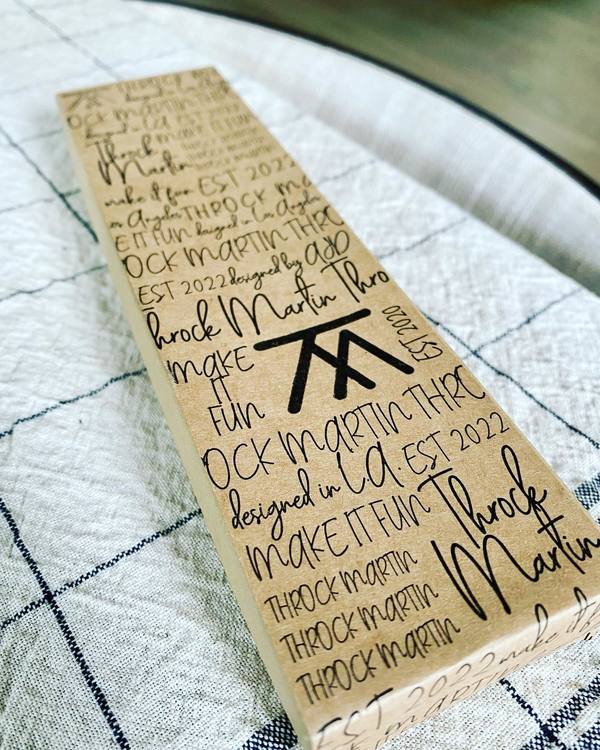 OCK MARTIN THR
Throck
Martin
make it fun EST 2022
Los Angeles THROCK MA
E IT FUN designed in Los Angeles
OCK MARTIN THRO
EST 2022 designed by ajb
Throck Martin Thro
MAKE
IT
FUN
TM
EST 2020
OCK MARTIN THRO
designed in LA. EST 2022
MAKE IT FUN
Throck
Martin
THROCK MARTIN
THROCK MARTIN
THROCK MARTIN
EST 2022 make it